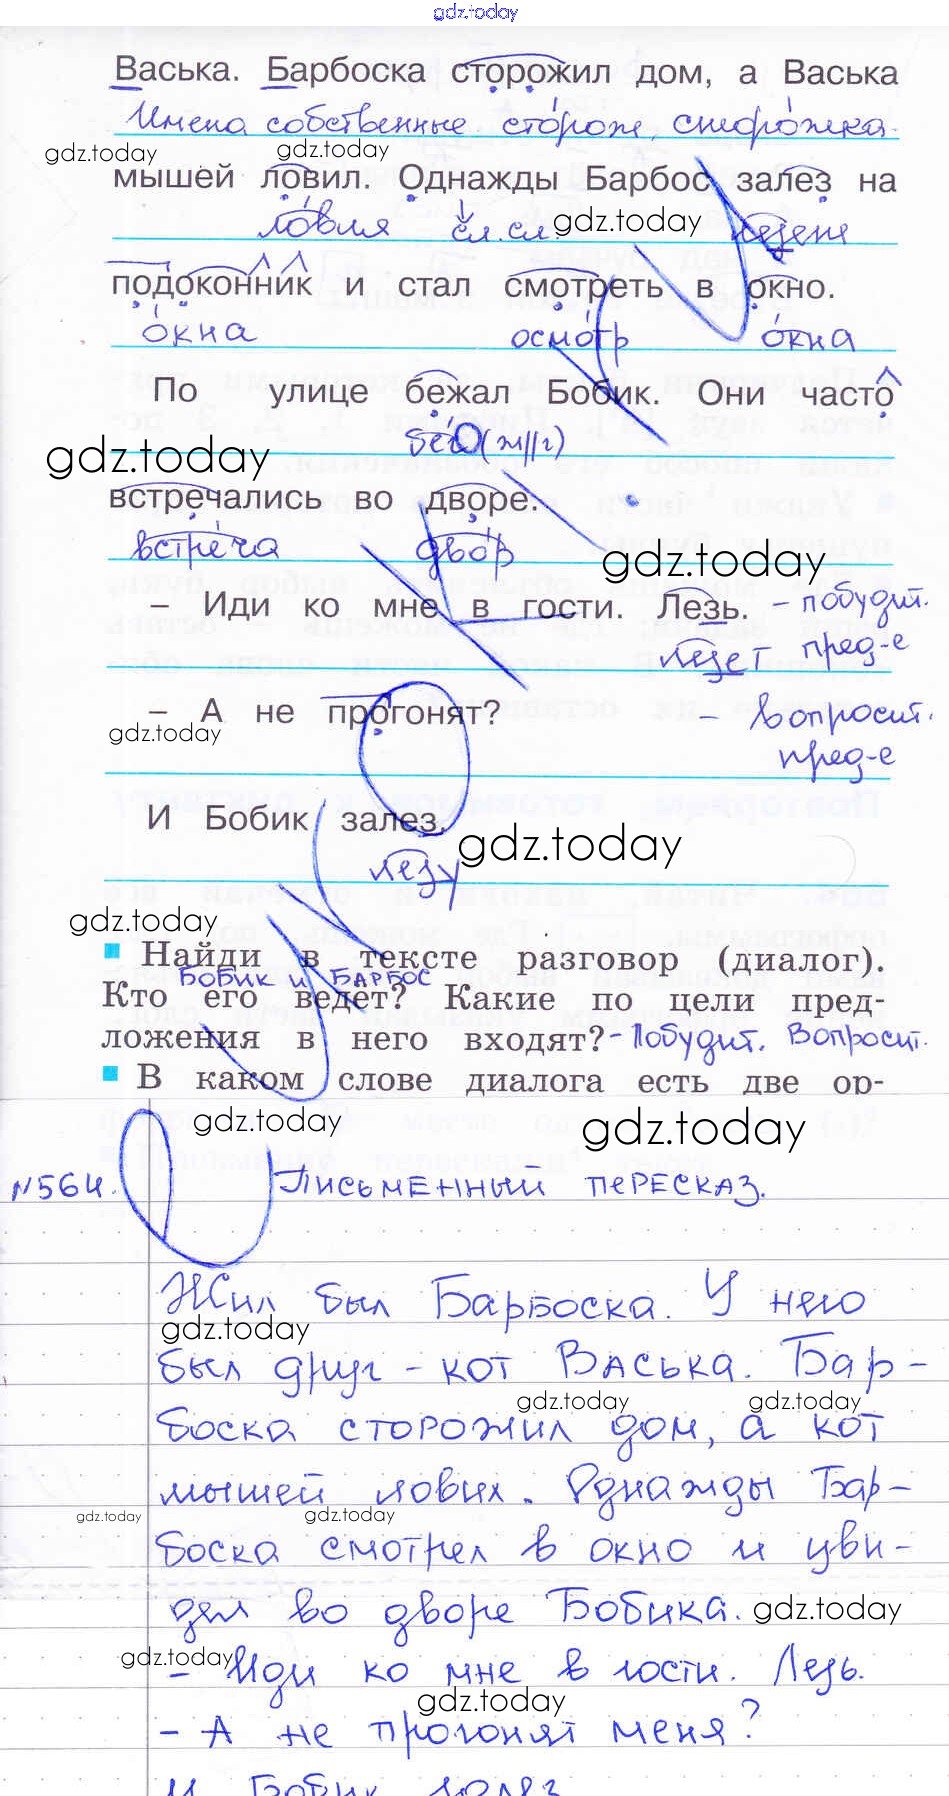 gdz.today
Васька. Барбоска сторожил дом, а Васька
Имена собственные сторож, сторожка.
gdz.today gdz.today
мышей ловил. Однажды Барбос залез на
ловля сл.сл. gdz.today лезет
подоконник и стал смотреть в окно.
окна осмотр окна
По улице бежал Бобик. Они часто
gdz.today бег (ж||г)
встречались во дворе.
встреча двор gdz.today
– Иди ко мне в гости. Лезь. – побудит.
лезет пред-е
– А не прогонят? – вопросит.
gdz.today пред-е
И Бобик залез.
лезу gdz.today
gdz.today
Найди в тексте разговор (диалог).
Бобик и Барбос
Кто его ведет? Какие по цели пред-
ложения в него входят? - Побудит. Вопросит.
В каком слове диалога есть две ор-
gdz.today gdz.today
№564. Письменный пересказ.
Жил был Барбоска. У него
gdz.today
был друг - кот Васька. Бар-
gdz.today gdz.today
боска сторожил дом, а кот
мышей ловил. Однажды Бар-
gdz.today gdz.today
боска смотрел в окно и уви-
дел во дворе Бобика. gdz.today
gdz.today
- Иди ко мне в гости. Лезь.
gdz.today
- А не прогонят меня?
И Бобик залез